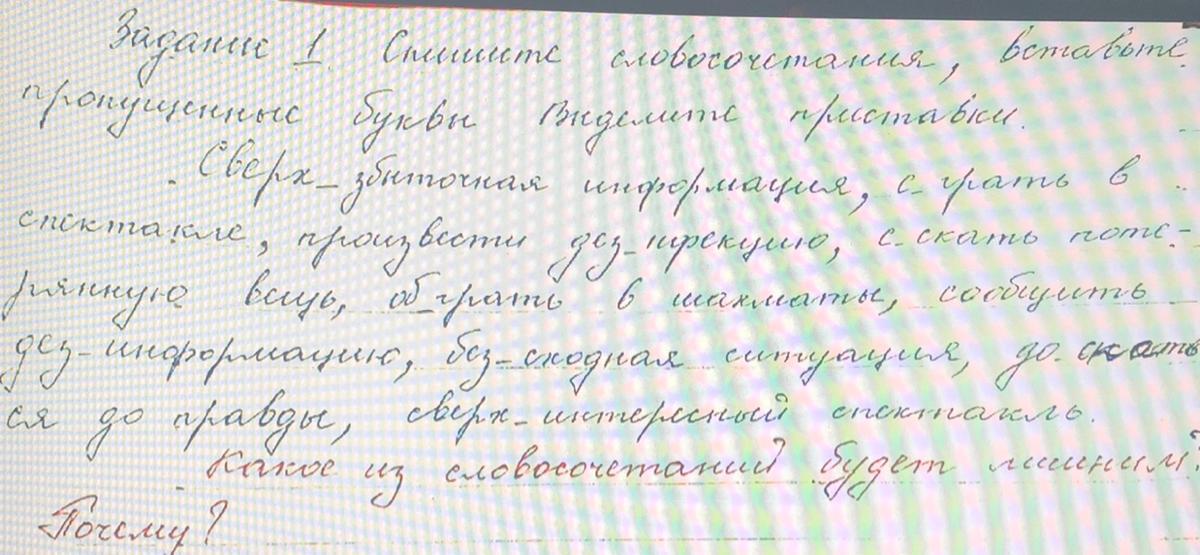 Задание 1. Спишите словосочетания, вставьте
пропущенные буквы Выделите приставки.
Сверх_збыточная информация, с_грать в
спектакле, произвести дез_нфекцию, с_скать поте-
рянную вещь, об_грать в шахматы, сообщить
дез_информацию, без_сходная ситуация, до_скать
ся до правды, сверх_интересный спектакль.
Какое из словосочетаний будет лишним?
Почему?